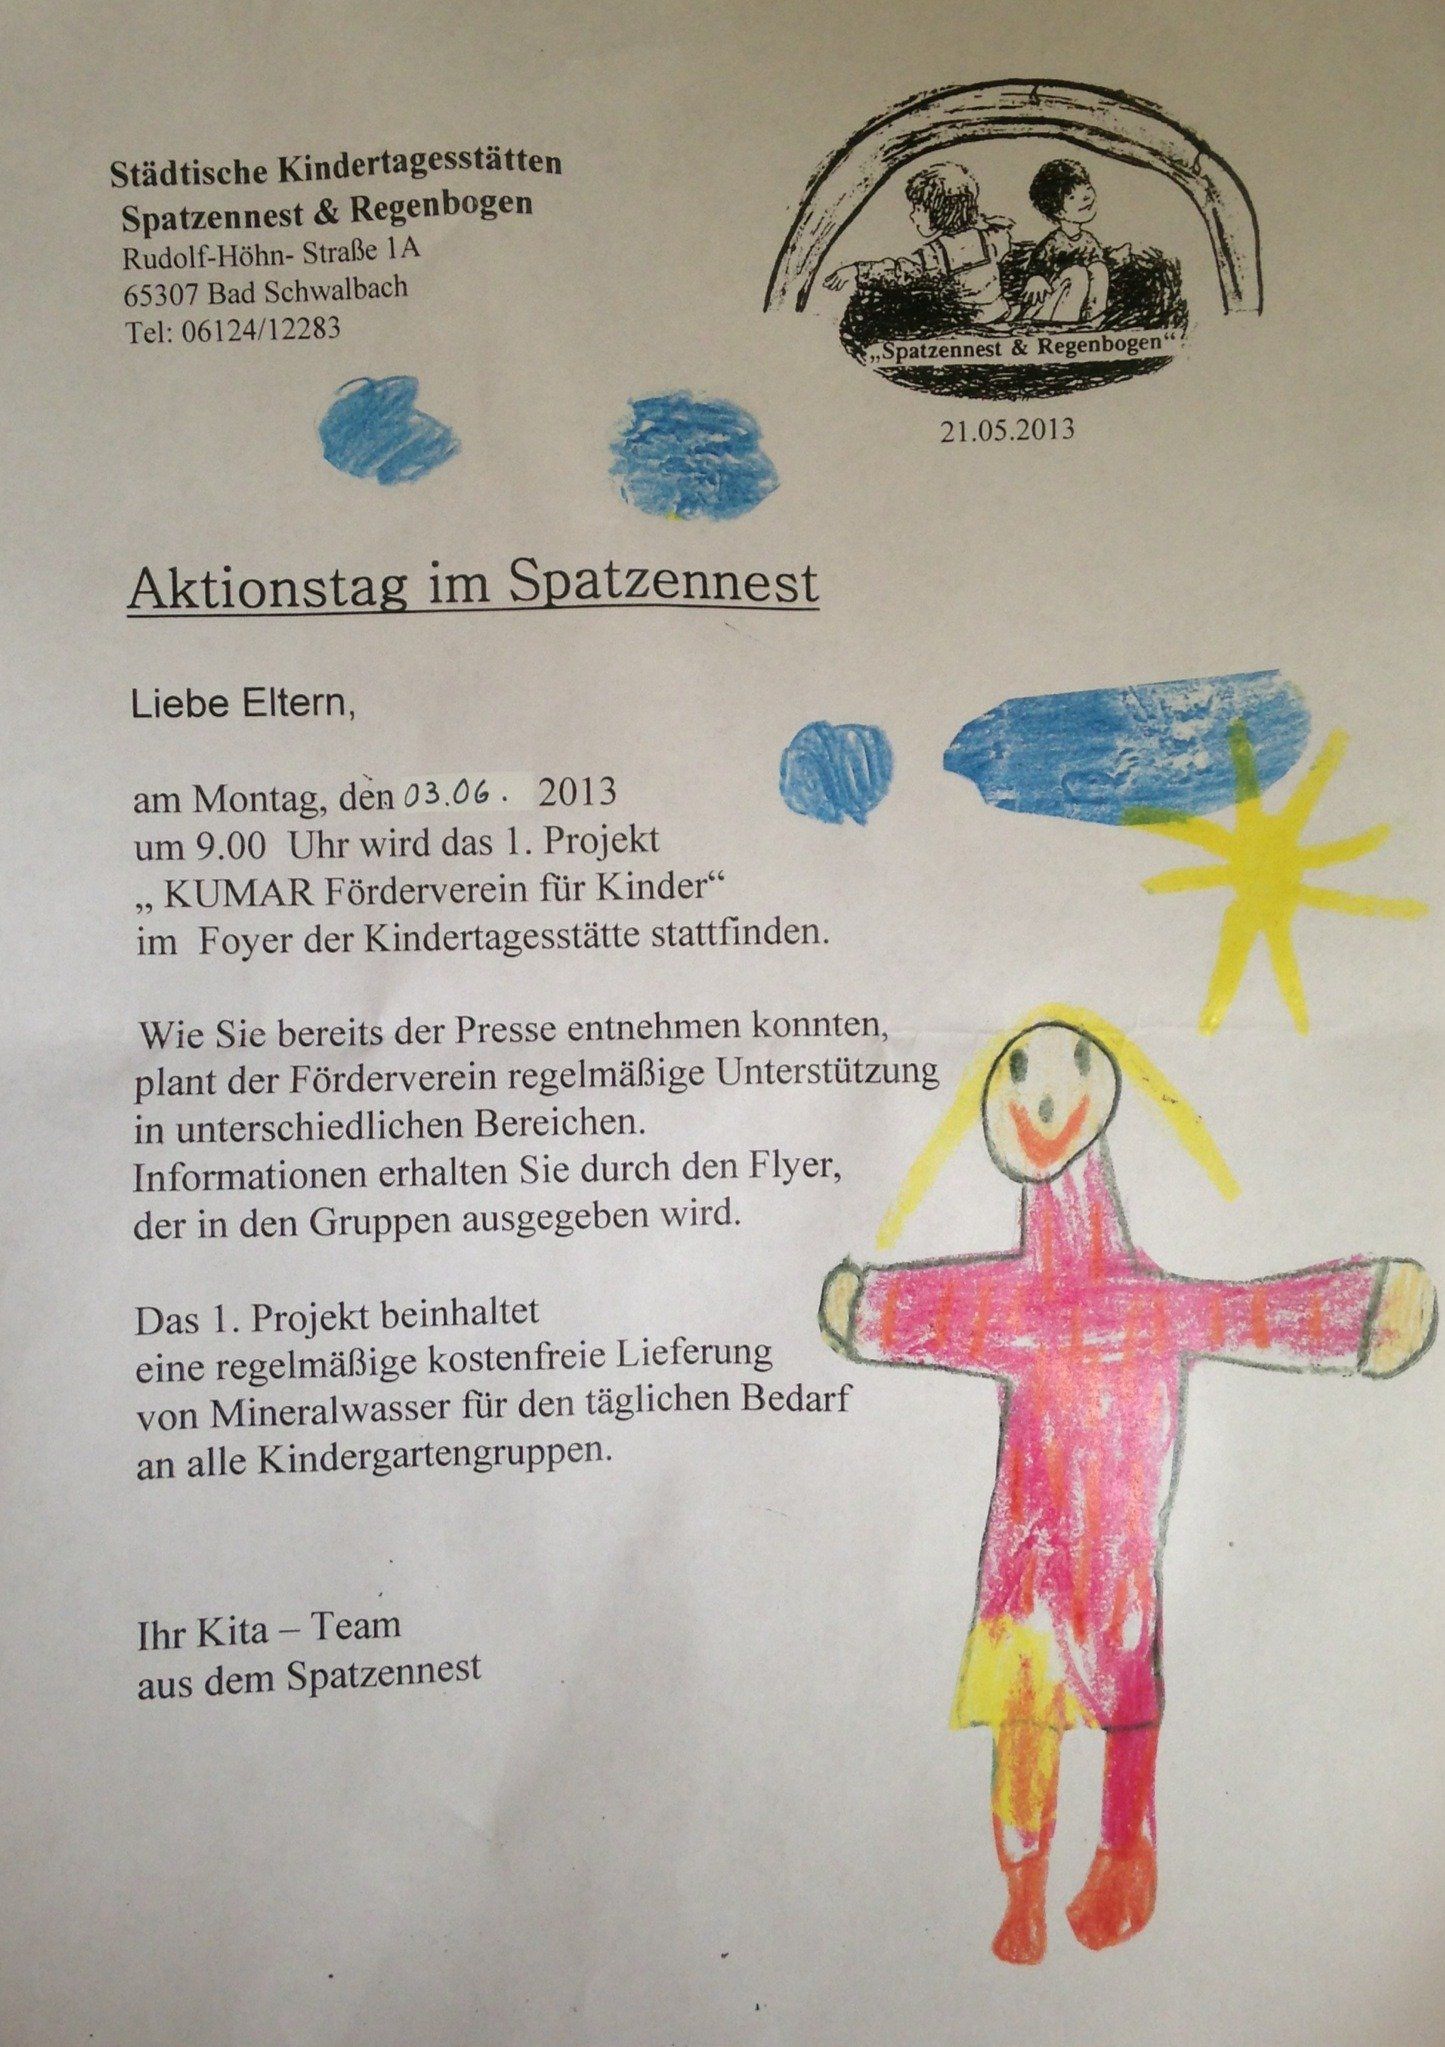 Städtische Kindertagesstätten
Spatzennest & Regenbogen
Rudolf-Höhn- Straße 1A
65307 Bad Schwalbach
Tel: 06124/12283
„Spatzennest & Regenbogen“
21.05.2013
Aktionstag im Spatzennest
Liebe Eltern,
am Montag, den 03.06. 2013
um 9.00 Uhr wird das 1. Projekt
„ KUMAR Förderverein für Kinder“
im Foyer der Kindertagesstätte stattfinden.
Wie Sie bereits der Presse entnehmen konnten,
plant der Förderverein regelmäßige Unterstützung
in unterschiedlichen Bereichen.
Informationen erhalten Sie durch den Flyer,
der in den Gruppen ausgegeben wird.
Das 1. Projekt beinhaltet
eine regelmäßige kostenfreie Lieferung
von Mineralwasser für den täglichen Bedarf
an alle Kindergartengruppen.
Ihr Kita – Team
aus dem Spatzennest